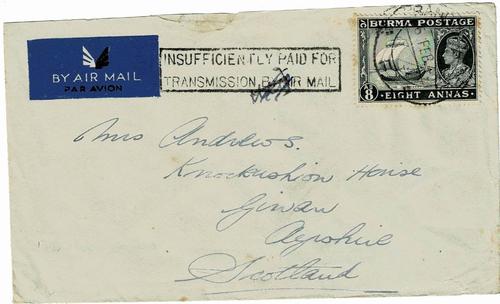 BY AIR MAIL
PAR AVION
INSUFFICIENTLY PAID FOR
TRANSMISSION BY AIR MAIL
BURMA POSTAGE
FEB
8 EIGHT ANNAS
Mrs Andrews.
Knockushion House
Girvan
Ayrshire
Scotland